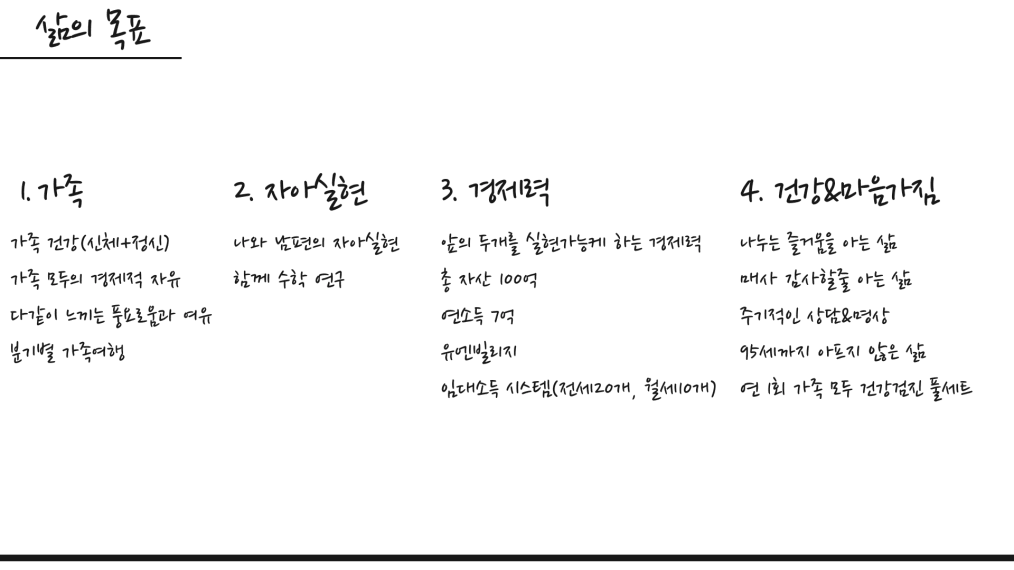 삶의 목표
1. 가족
가족 건강(신체+정신)
가족 모두의 경제적 자유
다같이 느끼는 풍요로움과 여유
분기별 가족여행
2. 자아실현
나와 남편의 자아실현
함께 수학 연구
3. 경제력
앞의 두개를 실현가능케 하는 경제력
총 자산 100억
연소득 7억
유엔빌리지
임대소득 시스템(전세20개, 월세10개)
4. 건강&마음가짐
나누는 즐거움을 아는 삶
매사 감사할줄 아는 삶
주기적인 상담&명상
95세까지 아프지 않은 삶
연 1회 가족 모두 건강검진 풀세트